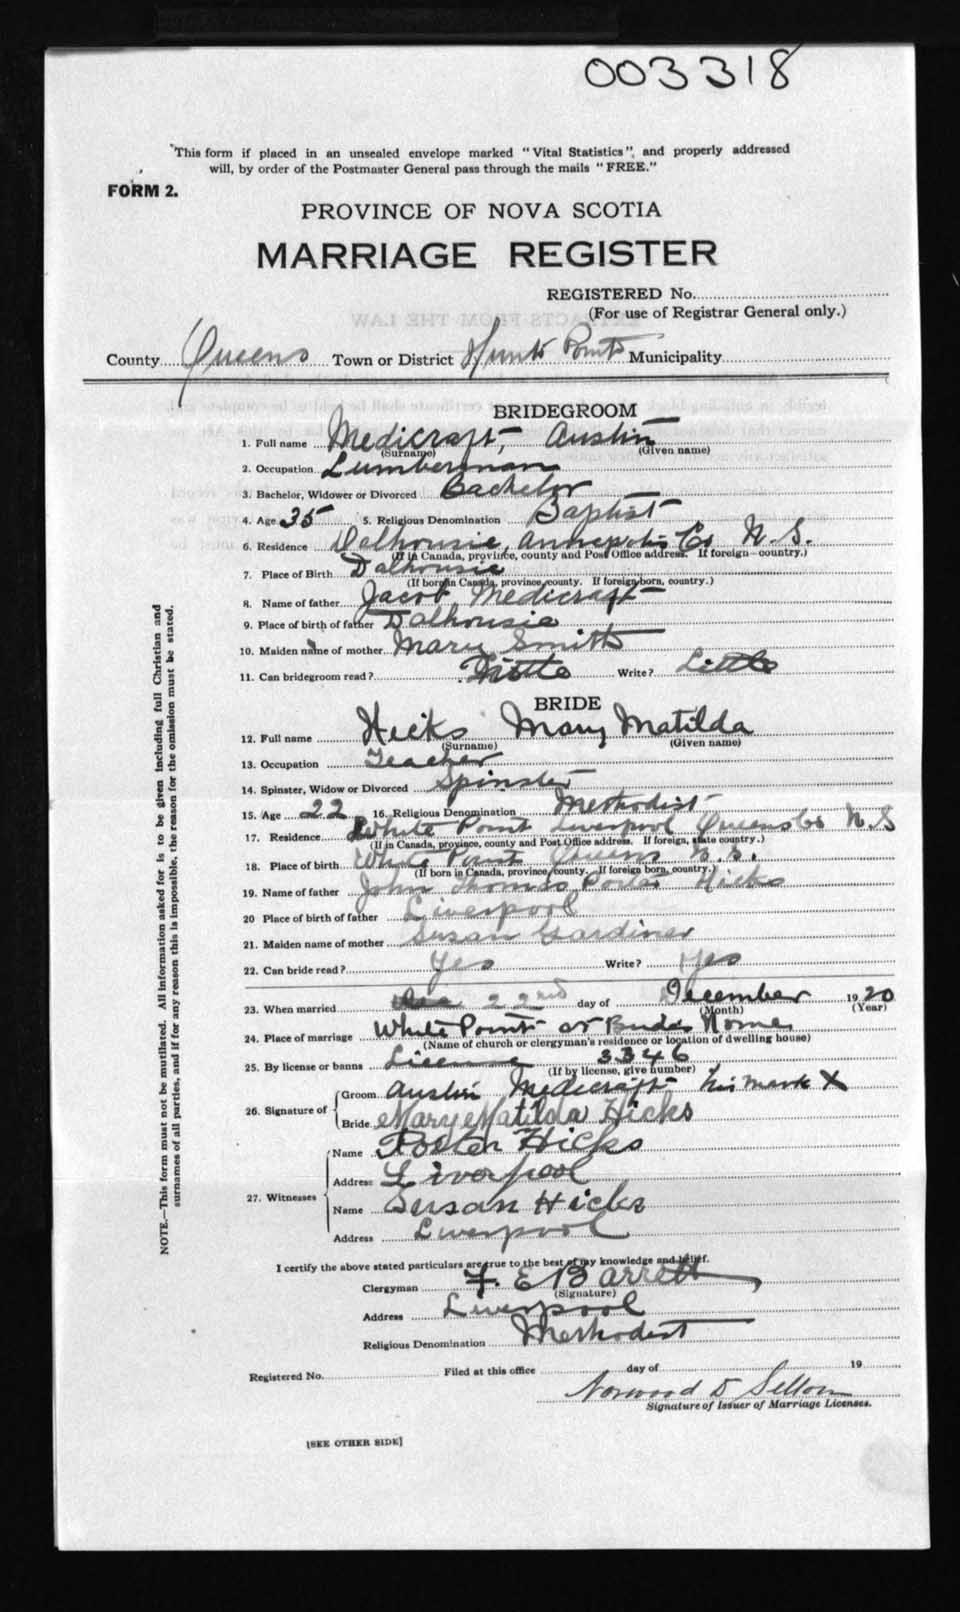 003318
"This form if placed in an unsealed envelope marked "Vital Statistics", and properly addressed
will, by order of the Postmaster General pass through the mails "FREE."
FORM 2.
PROVINCE OF NOVA SCOTIA
MARRIAGE REGISTER
REGISTERED No.
(For use of Registrar General only.)
County Queens Town or District Hunts Points Municipality
BRIDEGROOM
1. Full name Medicraft, Austin
(Surname) (Given name)
2. Occupation Lumberman
3. Bachelor, Widower or Divorced Bachelor
4. Age 35 5. Religious Denomination Baptist
6. Residence Dalhousie, Annapolis Co N.S.
(If in Canada, province, county and Post Office address. If foreign—country.)
7. Place of Birth Dalhousie
(If born in Canada, province, county. If foreign born, country.)
8. Name of father Jacob Medicraft
9. Place of birth of father Dalhousie
10. Maiden name of mother Mary Smith
11. Can bridegroom read? Write? Little
BRIDE
12. Full name Hicks Mary Matilda
(Surname) (Given name)
13. Occupation Teacher
14. Spinster, Widow or Divorced Spinster
15. Age 22 16. Religious Denomination Methodist
17. Residence White Point Liverpool Queens Co N.S
(If in Canada, province, county and Post Office address. If foreign, state country.)
18. Place of birth White Point Queens N.S.
(If born in Canada, province, county. If foreign born, country.)
19. Name of father John Thomas Hicks
20 Place of birth of father Liverpool
21. Maiden name of mother Susan Gardiner
22. Can bride read? Yes Write? Yes
23. When married 22nd day of December 1920
(Month) (Year)
24. Place of marriage White Point at Brides Home
(Name of church or clergyman's residence or location of dwelling house)
25. By license or banns License 3346
(If by license, give number)
26. Signature of Groom Austin Medicraft his mark X
Bride Mary Matilda Hicks
27. Witnesses Name Foster Hicks
Address Liverpool
Name Susan Hicks
Address Liverpool
I certify the above stated particulars are true to the best of my knowledge and belief.
Clergyman F. E Barrett
(Signature)
Address Liverpool
Religious Denomination Methodist
Registered No. Filed at this office day of 19
Norwood D Sellon
Signature of Issuer of Marriage Licenses.
[SEE OTHER SIDE]
NOTE.—This form must not be mutilated. All information asked for is to be given including full Christian and
surnames of all parties, and if for any reason this is impossible, the reason for the omission must be stated.